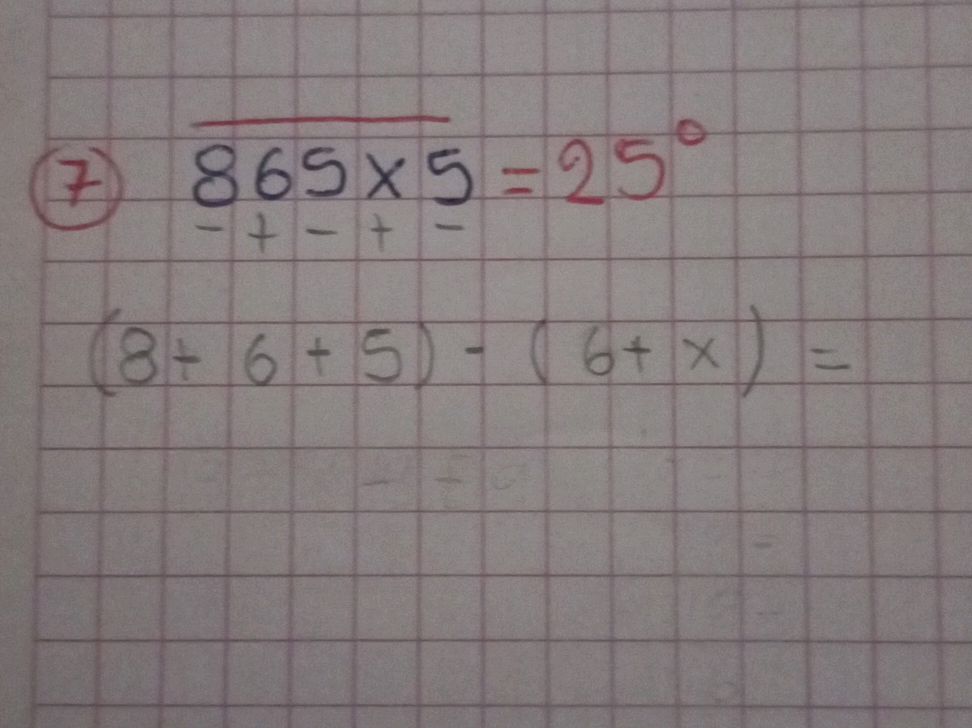 7 865x5 = 25°
- + - + -
(8+ 6 + 5) - ( 6+ x ) =